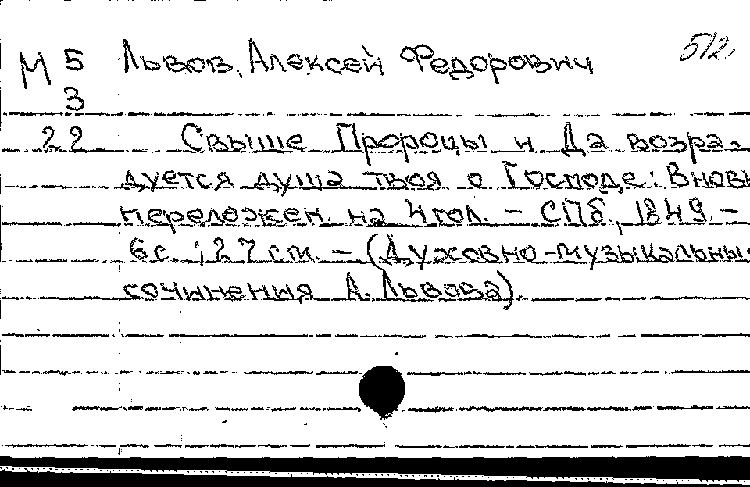 М 5 Львов, Алексей Федорович 512.
3
22 Свыше Пророцы и Да возра-
дуется душа твоя о Господе: Вновь
переложен. на 4 гол. – СПб., 1849. –
6 с. ; 27 см. – (Духовно-музыкальны
сочинения А. Львова).